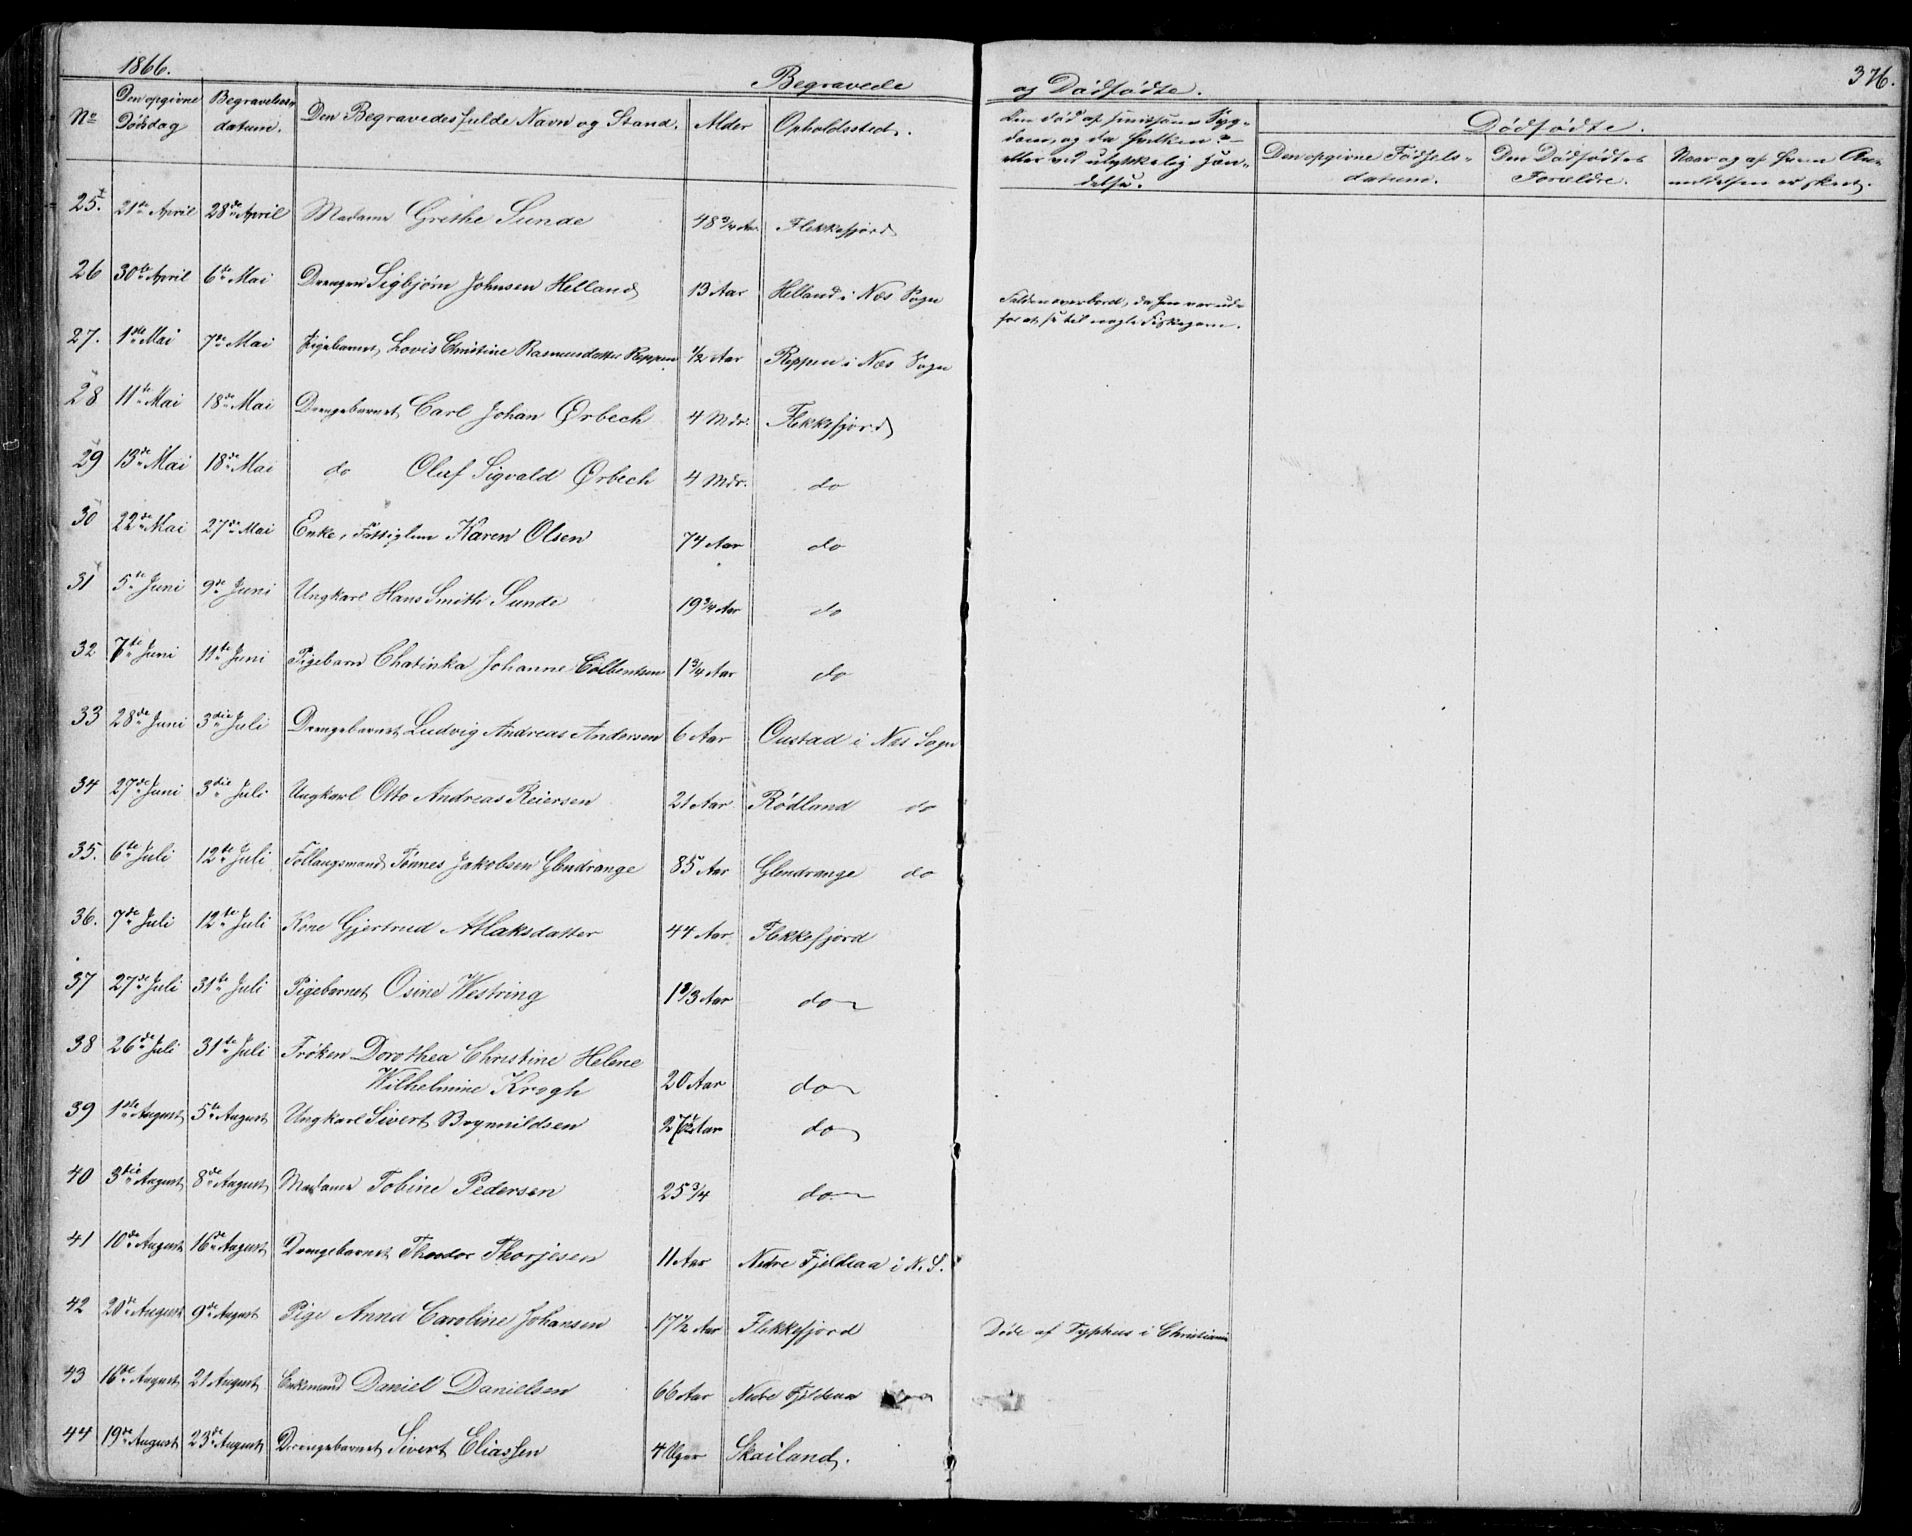 1866.
Begravede og Dødfødte.
376.
No Den opgivne Dødsdag Begravelses datum. Den Begravedes fulde Navn og Stand. Alder Opholdssted. Dødfødte.
Den opgivne Fødsels-datum. Den Dødfødtes Forældre. Naar og af hvem Anmeldelsen er skeet.
25. 21de April 28de April Madame Grethe Sunde 48 3/4 Aar Flekkefjord
26 30te April 6te Mai Drengen Sigbjørn Johnsen Helland 13 Aar Helland i Næs Sogn Falden overbord, da han var ude
for at se til nogle Fiskegarn.
27. 1ste Mai 7de Mai Pigebarnet Lovis Christine Rasmusdatter Reppen 1/2 Aar Reppen i Næs Sogn
28 11te Mai 18de Mai Drengebarnet Carl Johan Ørbech 4 Mdr. Flekkefjord
29 13de Mai 18de Mai do Oluf Sigvald Ørbech 4 Mdr. do
30 22de Mai 27de Mai Enke, Fattiglem Karen Olsen 74 Aar do
31 5te Juni 9de Juni Ungkarl Hans Smith Sunde 19 3/4 Aar do
32 7de Juni 11te Juni Pigebarn Chatinka Johanne Colbentsen 1 3/4 Aar do
33 28de Juni 3die Juli Drengebarnet Ludvig Andreas Andersen 6 Aar Oustad i Næs Sogn
34 27de Juni 3die Juli Ungkarl Otto Andreas Reiersen 21 Aar Rødland do
35. 6te Juli 12te Juli Føllaugsmand Tønnes Jakobsen Glendrange 85 Aar Glendrange do
36. 7de Juli 12te Juli Kone Gjertrud Atlaksdatter 44 Aar Flekkefjord
37 27de Juli 31te Juli Pigebarnet Osine Westring Aar do
38 26de Juli 31te Juli Frøken Dorothea Christine Helene
Wilhelmine Krogh 20 Aar do
39 1ste August 5te August Ungkarl Sivert Brynnildsen Aar do
40 3die August 8de August Madame Tobine Pedersen 25 3/4 do
41 10de August 16de August Drengebarnet Theodor Thorjesen 11 Aar Nedre Fjeldsaa i N. S.
42 20de August 9de August Pige Anna Caroline Johansen 17 1/2 Aar Flekkefjord Døde af Typhus i Christiania
43 16de August 21 August Enkemand Daniel Danielsen 66 Aar Nedre Fjeldsaa
44 19de August 23de August Drengebarnet Sivert Eliassen 4 Uger Skailand.